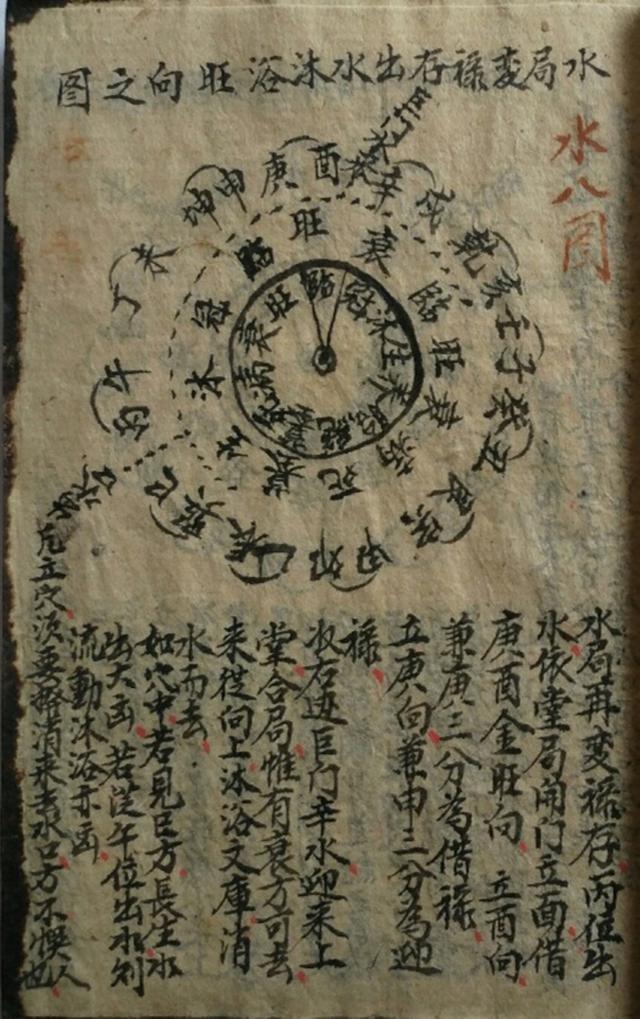 水局变禄存出水沐浴旺向之图
水八图
巨门水
庚酉
辛戌
乾亥
壬子
癸丑
甲卯
巳
丙午
丁未
坤申
旺
衰
临
旺
衰
死
沐
冠
临
临
冠
沐
生
养
病
衰
旺
水局再变禄存丙位出
水依堂局开门立面借
庚酉金旺向立酉向
兼庚三分为借禄
立庚向兼申三分为迎
禄
收右边巨门辛水迎来上
堂合局惟有衰方可去
来从向上沐浴文库消
水而去
如穴中若见巨方長生水
出大凶若从午位出水例
流動沐浴亦凶
凡立穴须要拨消来去水口方不悞人
也